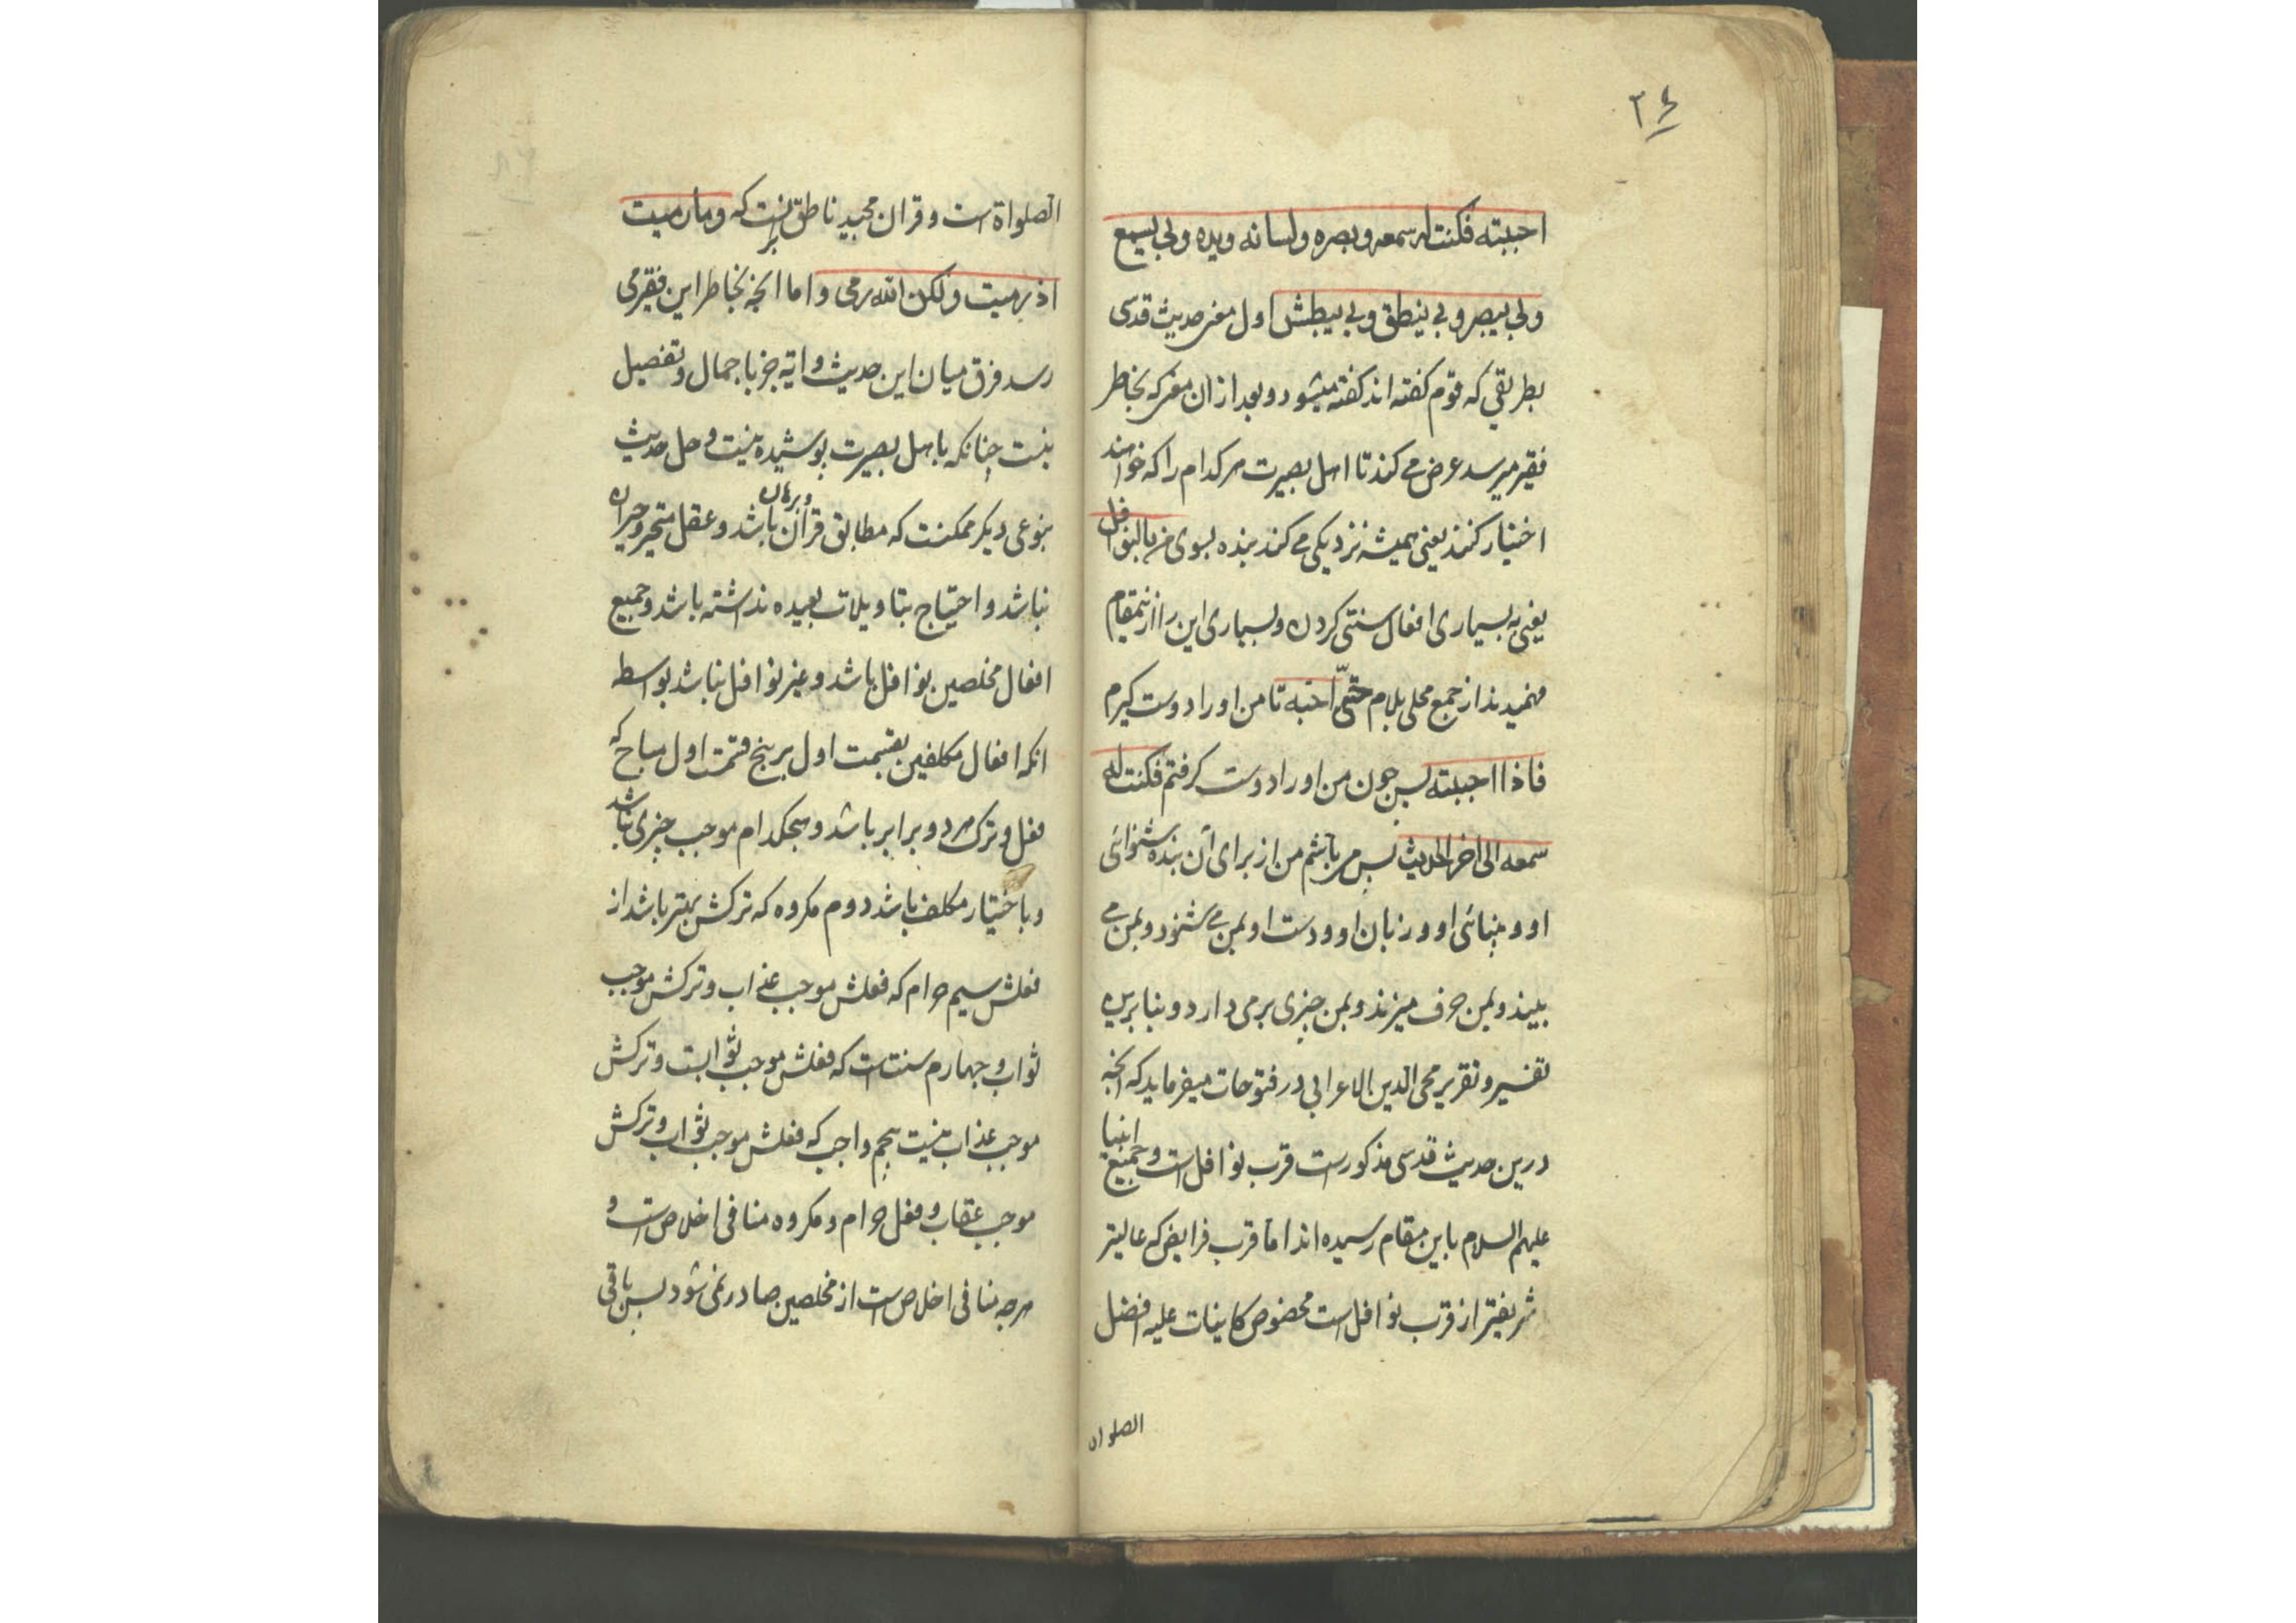 ۳۴
احببته فکنت له سمعه و بصره و لسانه ویده و بی یسمع
و بی یبصر و بی ینطق و بی یبطش اول معنی حدیث قدسی
بطریقی که قوم گفته اند گفته میشود و بعد از ان معنی که بخاطر
فقیر میرسد عرض می کند تا اهل بصیرت هر کدام را که خواهند
اختیار کنند یعنی همیشه نزدیکی می کند بنده بسوی من بالنوافل
یعنی به بسیاری افعال سنتی کردن و بسیاری این را ازینمقام
فهمیدند از جمع محلی بلام حتی احبه تا من او را دوست گیرم
فاذا احببته پس چون من او را دوست گرفتم فکنت له
سمعه الی اخر الحدیث پس می باشم من از برای آن بنده شنوائی
او و بینائی او و زبان او و دست او بمن می شنود و بمن می
بیند و بمن حرف میزند و بمن چیزی بر می دارد و بنا برین
تفسیر و تقریر محی الدین الاعرابی در فتوحات میفرماید که آنچه
درین حدیث قدسی مذکورست قرب نوافل است و جمیع انبیا
علیهم السلام باین مقام رسیده اند اما قرب فرایض که عالیتر
شریفتر از قرب نوافل است مخصوص کاینات علیه افضل
الصلواة
الصلواة است و قران مجید ناطق برینست که وما رمیت
اذ رمیت ولکن الله رمی و اما آنچه بخاطر این فقیر می
رسد فرق میان این حدیث و ایه جز باجمال و تفصیل
نیست چنانکه باهل بصیرت پوشیده نیست و حل حدیث
بنوعی دیگر ممکنست که مطابق قران و برهان باشد و عقل متحیر و حیران
نباشد و احتیاج بتاویلات بعیده نداشته باشد و جمیع
افعال مخلصین نوافل باشد و غیر نوافل نباشد بواسطه
انکه افعال مکلفین بقسمت اول بر پنج قسمت اول مباح که
فعل و ترک هر دو برابر باشد و هیچکدام موجب چیزی نباشد
و باختیار مکلف باشد دوم مکروه که ترکش بهتر باشد از
فعلش سیم حرام که فعلش موجب عذاب و ترکش موجب
ثواب و چهارم سنت است که فعلش موجب ثوابست و ترکش
موجب عذاب نیست پنجم واجب که فعلش موجب ثواب و ترکش
موجب عقاب و فعل حرام و مکروه منافی اخلاص است و
هرچه منافی اخلاص است از مخلصین صادر نمی شود پس باقی